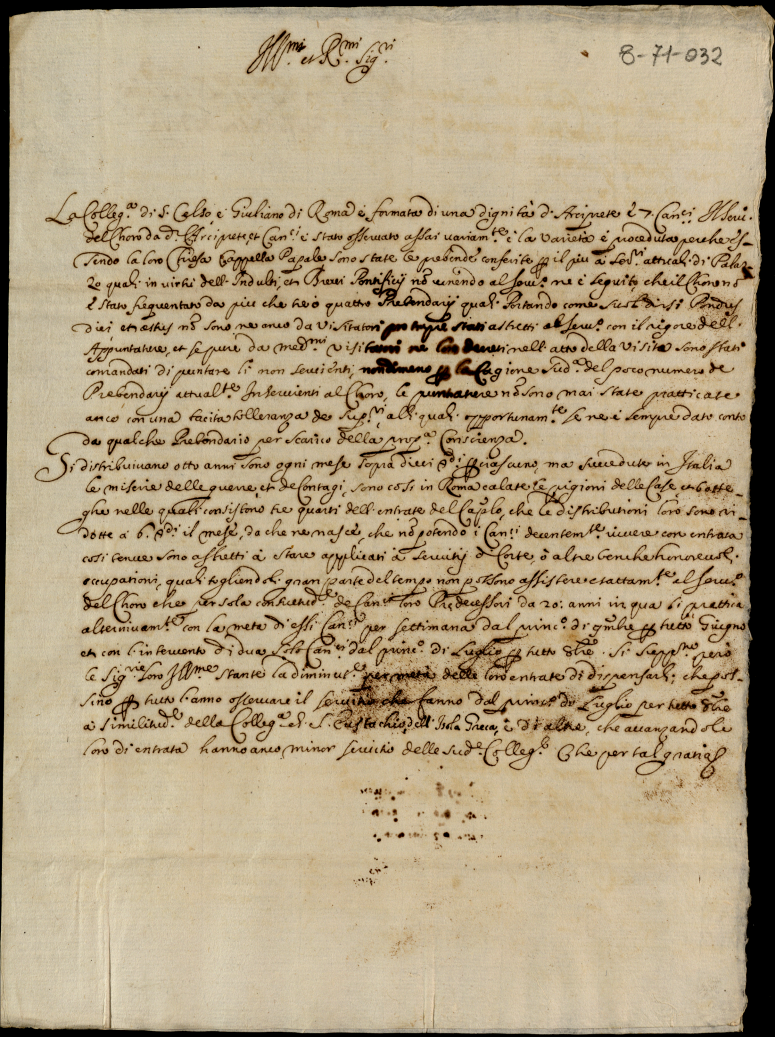 8-71-032
Ill.mi et R.mi Sig.ri
La Colleg.a di S. Celso, e Giuliano di Roma è formata di una dignità d'Arciprete e 7. Can.ci Il Serv.
del Choro da d. Arciprete, et Can.ci è stato osservato assai variam.te e la varietà è proceduta perche es-
sendo la loro Chiesa Cappella Papale sono state le prebende conferite il più a attuali di Palaz-
zo quali in virtù dell'Indulti, et Brevi Pontificij nõ venendo al serv.o ne è seguito, che il Choro nõ
è stato frequentato da più che tre ò quattro Prebendarij quali Portando come suol dirsi Pondus
diei et aestus nõ sono ne anco da Visitatori stati astretti al serv.o con il rigore dell'
Appuntature, et se pure da med.mi Visitatori ne loro decreti nell'atto della Visita sono stati
comandati di puntare li non servienti, nondimeno la cagione sud.a del poco numero de
Prebendarij attualm.te Intervenienti al Choro, le puntature nõ sono mai state pratticate
anco con una tacita tolleranza de Sup.ri alli quali opportunam.te se ne è sempre dato conto
da qualche Prebendario per scarico della prop.a Conscienza.
Si distribuivano otto anni sono ogni mese sopra dieci ciascuno, ma succedute in Italia
le miserie delle guerre, et de Contagi, sono così in Roma calate le pigioni delle Case et botte-
ghe nelle quali consistono tre quarti dell'entrate del Cap.lo, che le distributioni loro sono ri-
dotte a 6. il mese, da che ne nasce, che nõ potendo i Can.ci decentem.te vivere con entrata
così tenue sono astretti à stare applicati à servitij di Corte, ò altre benche honorevoli
occupationi, quali togliendoli gran parte del tempo non possono assistere esattam.te al serv.o
del Choro che per sola de Can.ci loro Predecessori da 20. anni in qua si prattica
alternivam.te con la metà di essi Can.ci per settimana dal princ.o di tutto Giugno
et con l'intervento di dua soli Can.ci dal princ.o di Luglio tutto 8bre. Si però
le Sig.rie loro Ill.me stante la diminut.e per metà delle loro entrate di dispensarli, che pos-
sino tutto l'anno osservare il servitio che fanno dal princ.o di Luglio per tutto 8bre
à similitud.e della Colleg.a di S. Eustachio, dell' e di altre, che avanzandole
loro di entrata hanno anco minor servitio delle sud.e Colleg.te Che per tal gratia